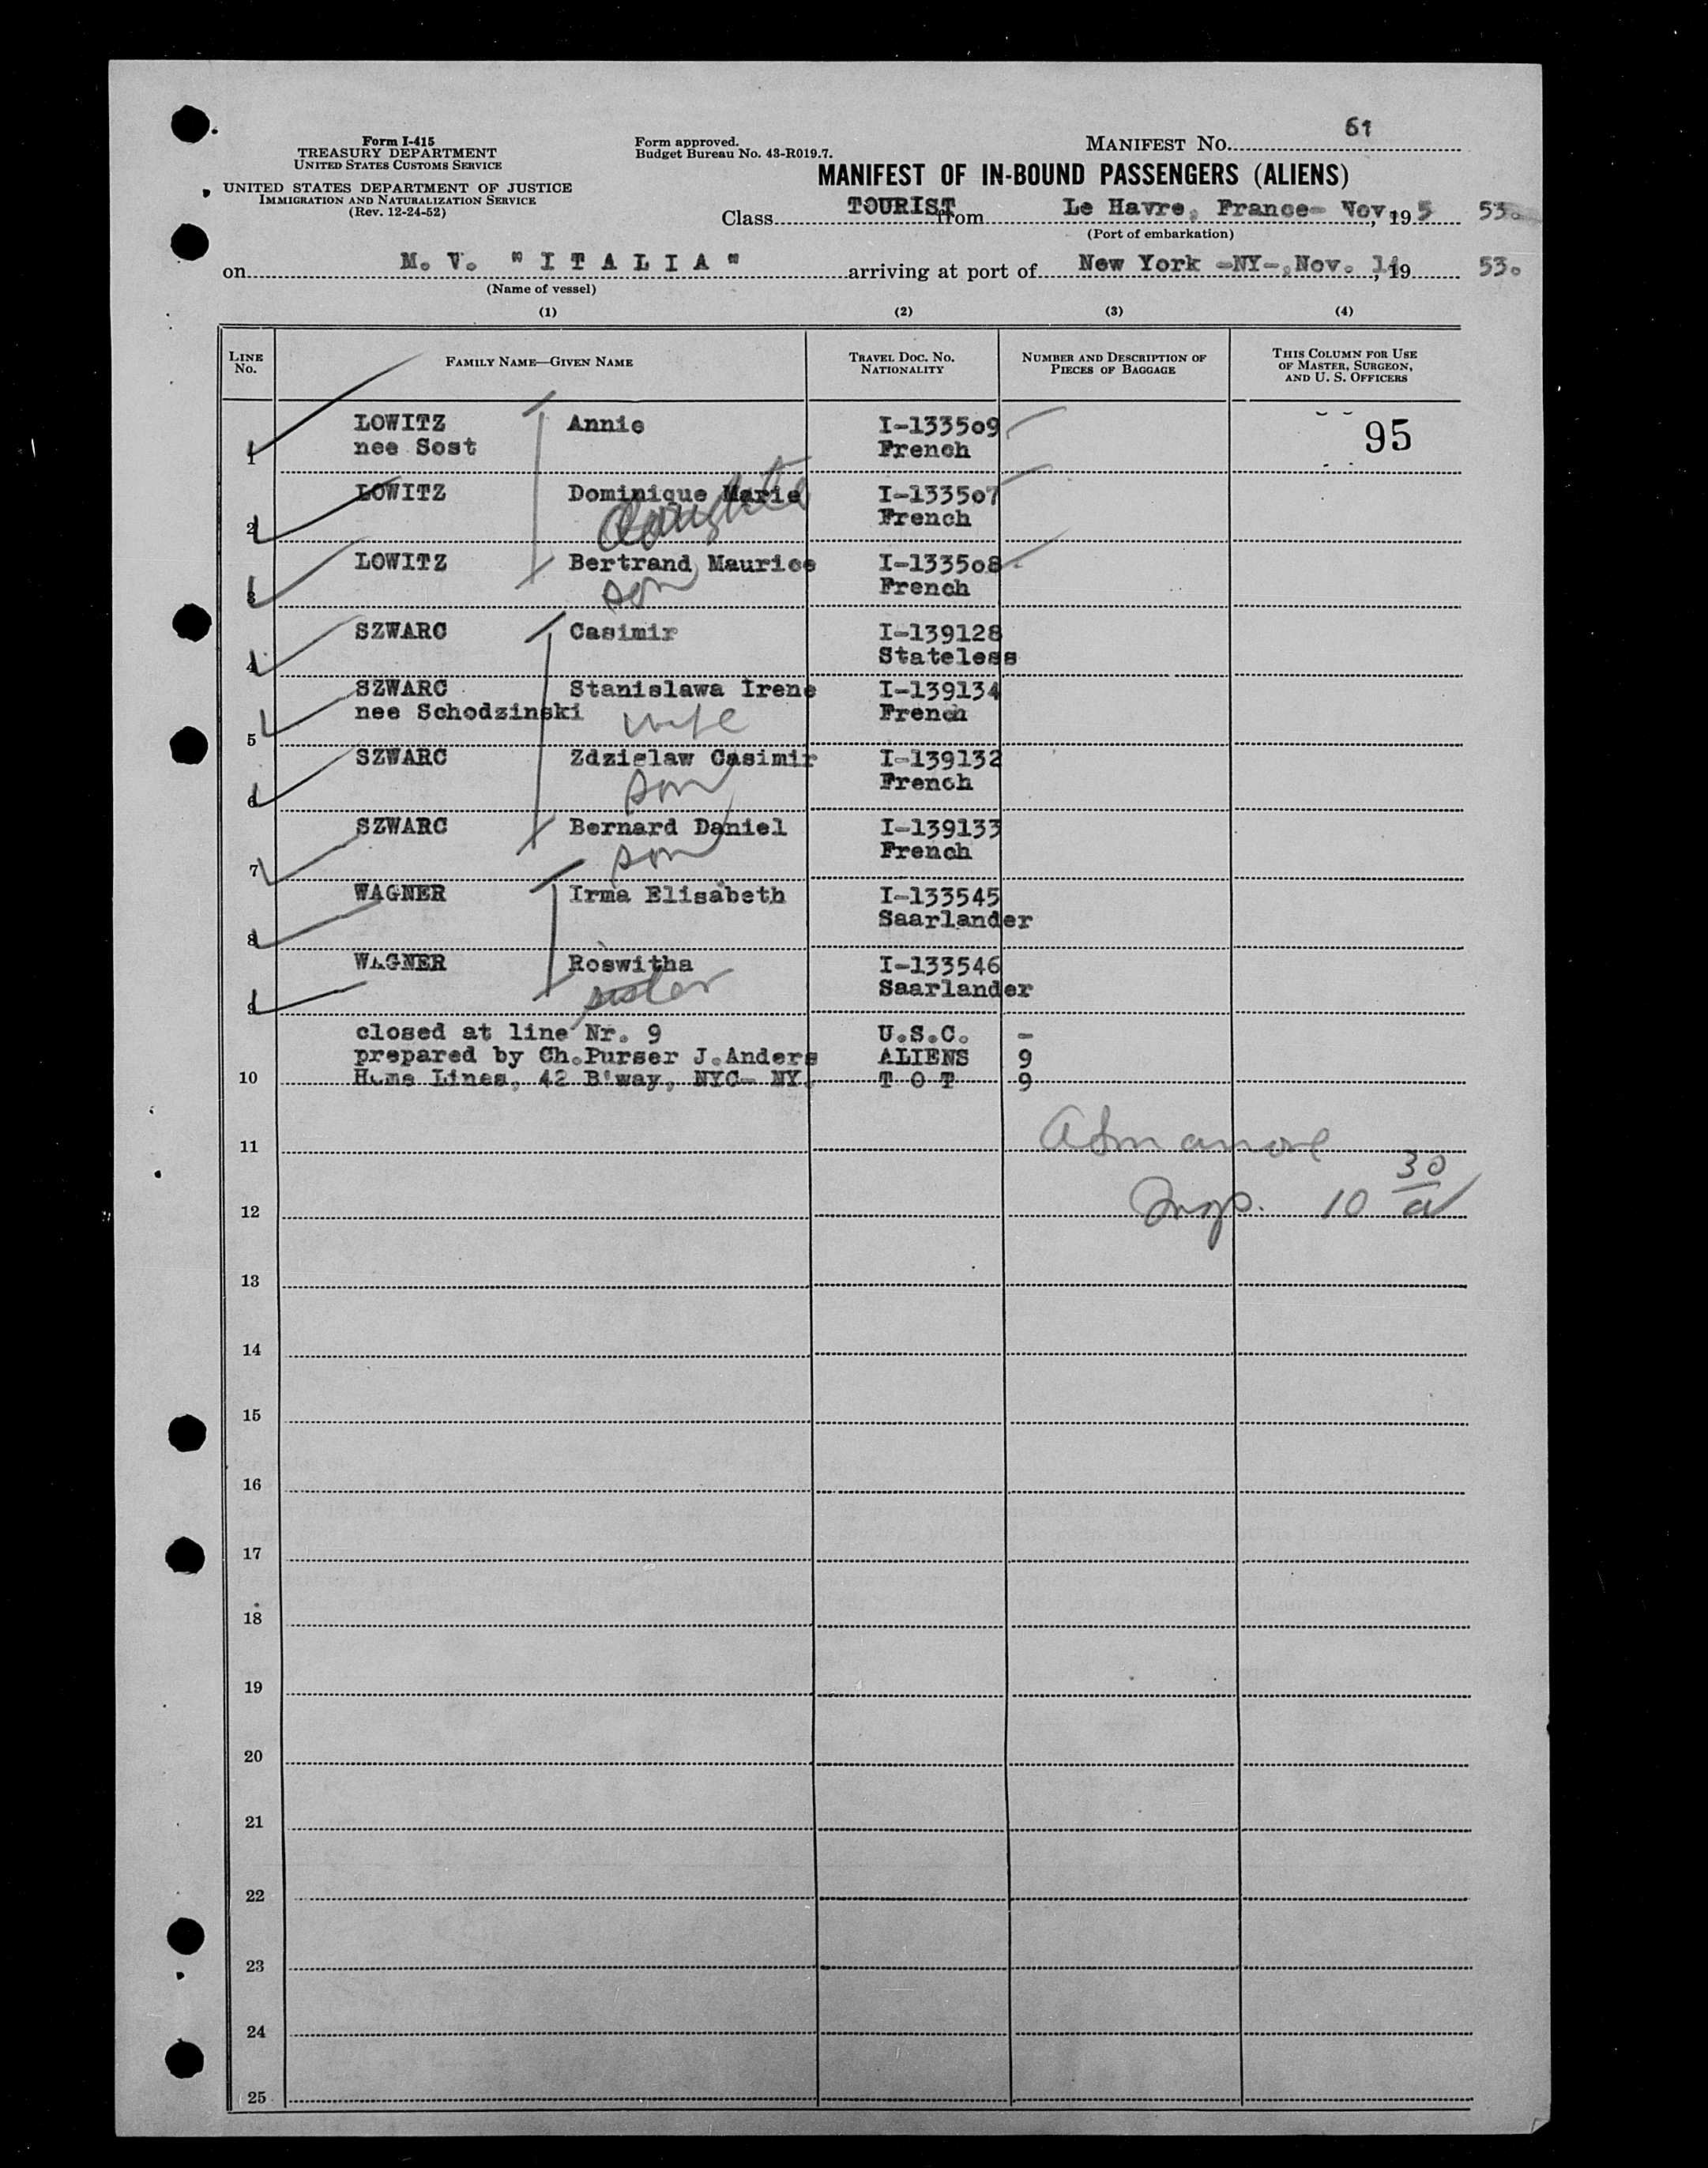 61
Form I-415
TREASURY DEPARTMENT
UNITED STATES CUSTOMS SERVICE
Form approved.
Budget Bureau No. 43-R019.7.
MANIFEST NO.
MANIFEST OF IN-BOUND PASSENGERS (ALIENS)
UNITED STATES DEPARTMENT OF JUSTICE
IMMIGRATION AND NATURALIZATION SERVICE
(Rev. 12-24-52)
Class TOURIST from Le Havre, France- Nov. 5, 19 53.
(Port of embarkation)
on M. V. "I T A L I A" arriving at port of New York -NY-, Nov. 19 53.
(Name of vessel)
(1) (2) (3) (4)
LINE NO.
FAMILY NAME—GIVEN NAME
TRAVEL DOC. NO. NATIONALITY
NUMBER AND DESCRIPTION OF PIECES OF BAGGAGE
THIS COLUMN FOR USE OF MASTER, SURGEON, AND U. S. OFFICERS
LOWITZ Annie I-133509 95
1 nee Sost French
LOWITZ Dominique Marie I-133507
2 daughter French
LOWITZ Bertrand Maurice I-133508
3 son French
SZWARC Casimir I-139128
4 Stateless
SZWARC Stanislawa Irene I-139134
nee Schodzinski wife French
5
SZWARC Zdzislaw Casimir I-139132
6 son French
SZWARC Bernard Daniel I-139133
7 son French
WAGNER Irma Elisabeth I-133545
8 Saarlander
WAGNER Roswitha I-133546
9 sister Saarlander
closed at line Nr. 9 U.S.C. -
prepared by Ch.Purser J.Anders ALIENS 9
10 Home Lines, 42 B'way, NYC- NY. T O T 9
11
12 Insp. 10 30/a
13
14
15
16
17
18
19
20
21
22
23
24
25